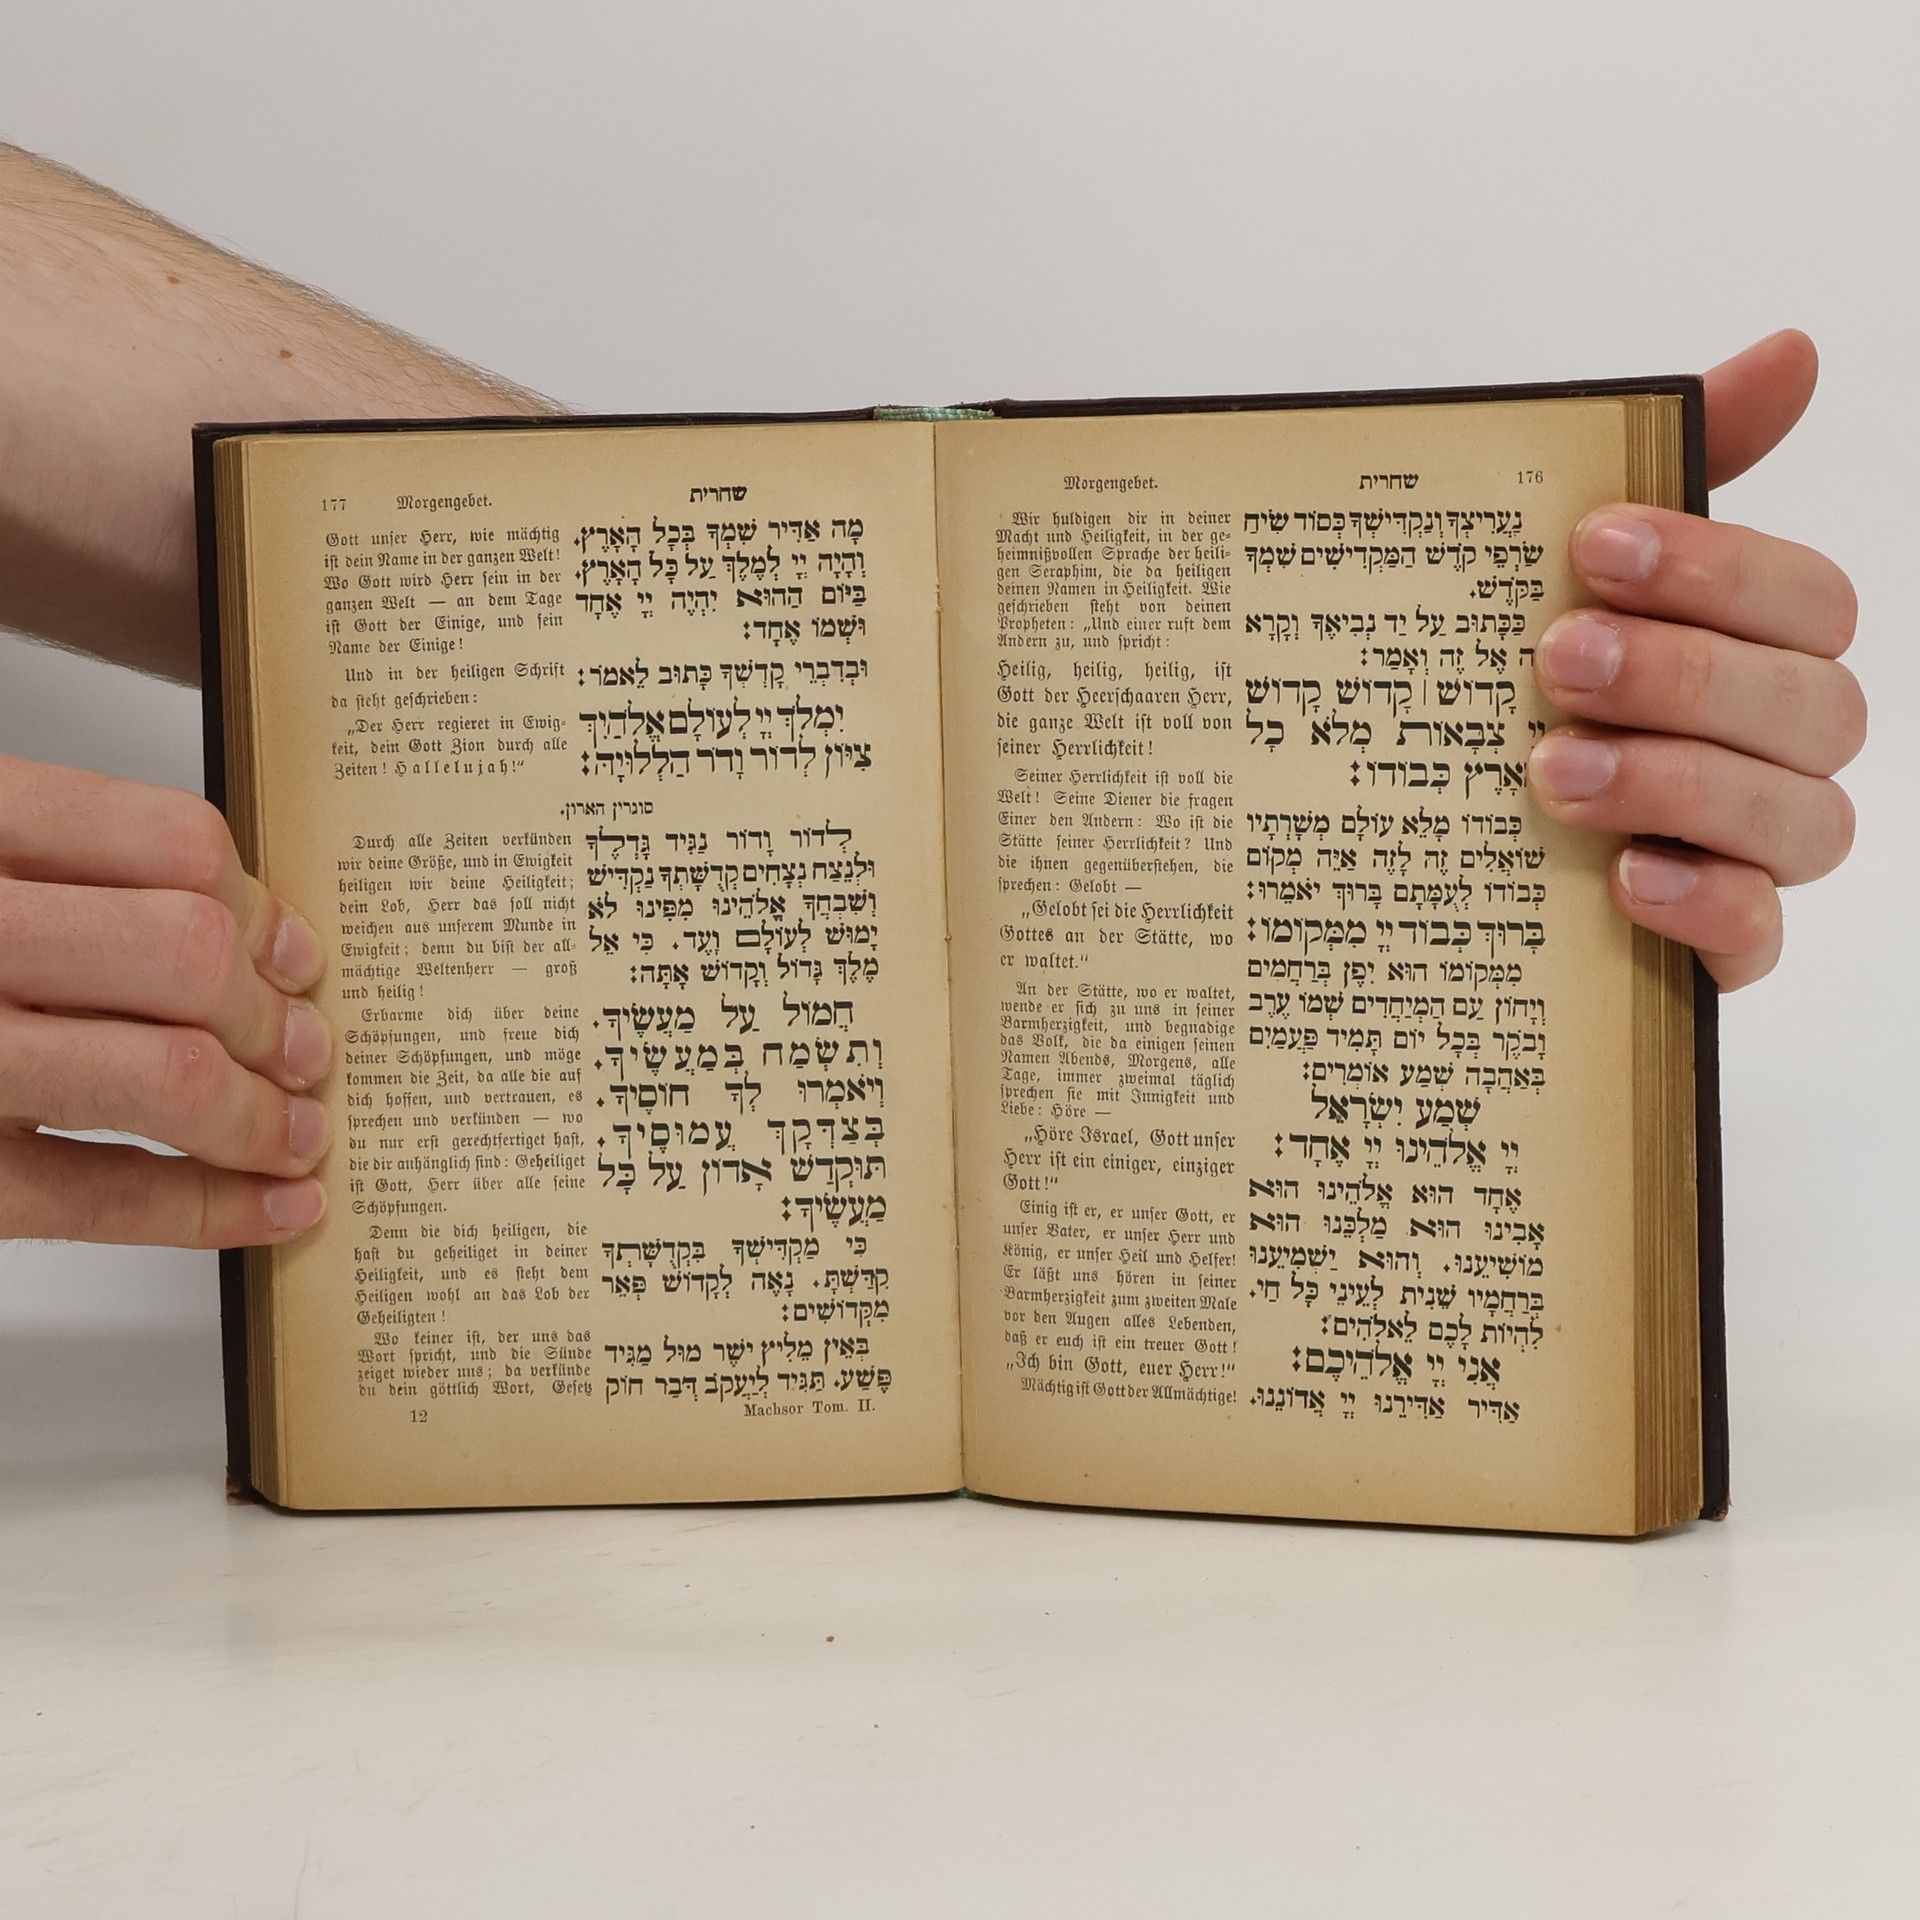 Morgengebet. שחרית 176
נַעֲרִיצְךָ וְנַקְדִּישְׁךָ כְּסוֹד שִׂיחַ
שַׂרְפֵי קֹדֶשׁ הַמַּקְדִּישִׁים שִׁמְךָ
בַּקֹּדֶשׁ.
כַּכָּתוּב עַל יַד נְבִיאֶךָ וְקָרָא
זֶה אֶל זֶה וְאָמַר:
קָדוֹשׁ | קָדוֹשׁ קָדוֹשׁ
יְיָ צְבָאוֹת מְלֹא כָל
הָאָרֶץ כְּבוֹדוֹ:
כְּבוֹדוֹ מָלֵא עוֹלָם מְשָׁרְתָיו
שׁוֹאֲלִים זֶה לָזֶה אַיֵּה מְקוֹם
כְּבוֹדוֹ לְעֻמָּתָם בָּרוּךְ יֹאמֵרוּ:
בָּרוּךְ כְּבוֹד יְיָ מִמְּקוֹמוֹ:
מִמְּקוֹמוֹ הוּא יִפֶן בְּרַחֲמִים
וְיָחוֹן עַם הַמְיַחֲדִים שְׁמוֹ עֶרֶב
וָבֹקֶר בְּכָל יוֹם תָּמִיד פַּעֲמַיִם
בְּאַהֲבָה שְׁמַע אוֹמְרִים:
שְׁמַע יִשְׂרָאֵל
יְיָ אֱלֹהֵינוּ יְיָ אֶחָד:
אֶחָד הוּא אֱלֹהֵינוּ הוּא
אָבִינוּ הוּא מַלְכֵּנוּ הוּא
מוֹשִׁיעֵנוּ. וְהוּא יַשְׁמִיעֵנוּ
בְּרַחֲמָיו שֵׁנִית לְעֵינֵי כָּל חַי.
לִהְיוֹת לָכֶם לֵאלֹהִים:
אֲנִי יְיָ אֱלֹהֵיכֶם:
אַדִּיר אַדִּירֵנוּ יְיָ אֲדוֹנֵנוּ.
Wir huldigen dir in deiner
Macht und Heiligkeit, in der ge-
heimnißvollen Sprache der heili-
gen Seraphim, die da heiligen
deinen Namen in Heiligkeit. Wie
geschrieben steht von deinen
Propheten: „Und einer ruft dem
Andern zu, und spricht:
Heilig, heilig, heilig, ist
Gott der Heerschaaren Herr,
die ganze Welt ist voll von
seiner Herrlichkeit!
Seiner Herrlichkeit ist voll die
Welt! Seine Diener die fragen
Einer den Andern: Wo ist die
Stätte seiner Herrlichkeit? Und
die ihnen gegenüberstehen, die
sprechen: Gelobt —
„Gelobt sei die Herrlichkeit
Gottes an der Stätte, wo
er waltet.“
An der Stätte, wo er waltet,
wende er sich zu uns in seiner
Barmherzigkeit, und begnadige
das Volk, die da einigen seinen
Namen Abends, Morgens, alle
Tage, immer zweimal täglich
sprechen sie mit Innigkeit und
Liebe: Höre —
„Höre Israel, Gott unser
Herr ist ein einiger, einziger
Gott!“
Einig ist er, er unser Gott, er
unser Vater, er unser Herr und
König, er unser Heil und Helfer!
Er läßt uns hören in seiner
Barmherzigkeit zum zweiten Male
vor den Augen alles Lebenden,
daß er euch ist ein treuer Gott!
„Ich bin Gott, euer Herr!“
Mächtig ist Gott der Allmächtige!
177 Morgengebet. שחרית
מָה אַדִּיר שִׁמְךָ בְּכָל הָאָרֶץ.
וְהָיָה יְיָ לְמֶלֶךְ עַל כָּל הָאָרֶץ.
בַּיּוֹם הַהוּא יִהְיֶה יְיָ אֶחָד
וּשְׁמוֹ אֶחָד:
וּבְדִבְרֵי קָדְשְׁךָ כָּתוּב לֵאמֹר:
יִמְלֹךְ יְיָ לְעוֹלָם אֱלֹהַיִךְ
צִיּוֹן לְדוֹר וָדֹר הַלְלוּיָהּ:
סוגרין הארון.
לְדוֹר וָדוֹר נַגִּיד גָּדְלֶךָ
וּלְנֵצַח נְצָחִים קְדֻשָּׁתְךָ נַקְדִּישׁ
וְשִׁבְחֲךָ אֱלֹהֵינוּ מִפִּינוּ לֹא
יָמוּשׁ לְעוֹלָם וָעֶד. כִּי אֵל
מֶלֶךְ גָּדוֹל וְקָדוֹשׁ אָתָּה:
חֲמוֹל עַל מַעֲשֶׂיךָ.
וְתִשְׂמַח בְּמַעֲשֶׂיךָ.
וְיֹאמְרוּ לְךָ חוֹסֶיךָ.
בְּצַדֶּקְךָ עֲמוּסֶיךָ.
תּוּקְדַּשׁ אָדוֹן עַל כָּל
מַעֲשֶׂיךָ:
כִּי מַקְדִּישֶׁיךָ בִּקְדֻשָּׁתְךָ
קִדַּשְׁתָּ. נָאֶה לְקָדוֹשׁ פְּאֵר
מִקְּדוֹשִׁים:
בְּאֵין מֵלִיץ יֹשֶׁר מוּל מַגִּיד
פֶּשַׁע. תַּגִּיד לְיַעֲקֹב דְּבַר חוֹק
Gott unser Herr, wie mächtig
ist dein Name in der ganzen Welt!
Wo Gott wird Herr sein in der
ganzen Welt — an dem Tage
ist Gott der Einige, und sein
Name der Einige!
Und in der heiligen Schrift
da steht geschrieben:
„Der Herr regieret in Ewig-
keit, dein Gott Zion durch alle
Zeiten! Hallelujah!“
Durch alle Zeiten verkünden
wir deine Größe, und in Ewigkeit
heiligen wir deine Heiligkeit;
dein Lob, Herr das soll nicht
weichen aus unserem Munde in
Ewigkeit; denn du bist der all-
mächtige Weltenherr — groß
und heilig!
Erbarme dich über deine
Schöpfungen, und freue dich
deiner Schöpfungen, und möge
kommen die Zeit, da alle die auf
dich hoffen, und vertrauen, es
sprechen und verkünden — wo
du nur erst gerechtfertiget hast,
die dir anhänglich sind: Geheiliget
ist Gott, Herr über alle seine
Schöpfungen.
Denn die dich heiligen, die
hast du geheiliget in deiner
Heiligkeit, und es steht dem
Heiligen wohl an das Lob der
Geheiligten!
Wo keiner ist, der uns das
Wort spricht, und die Sünde
zeiget wieder uns; da verkünde
du dein göttlich Wort, Gesetz
12 Machsor Tom. II.